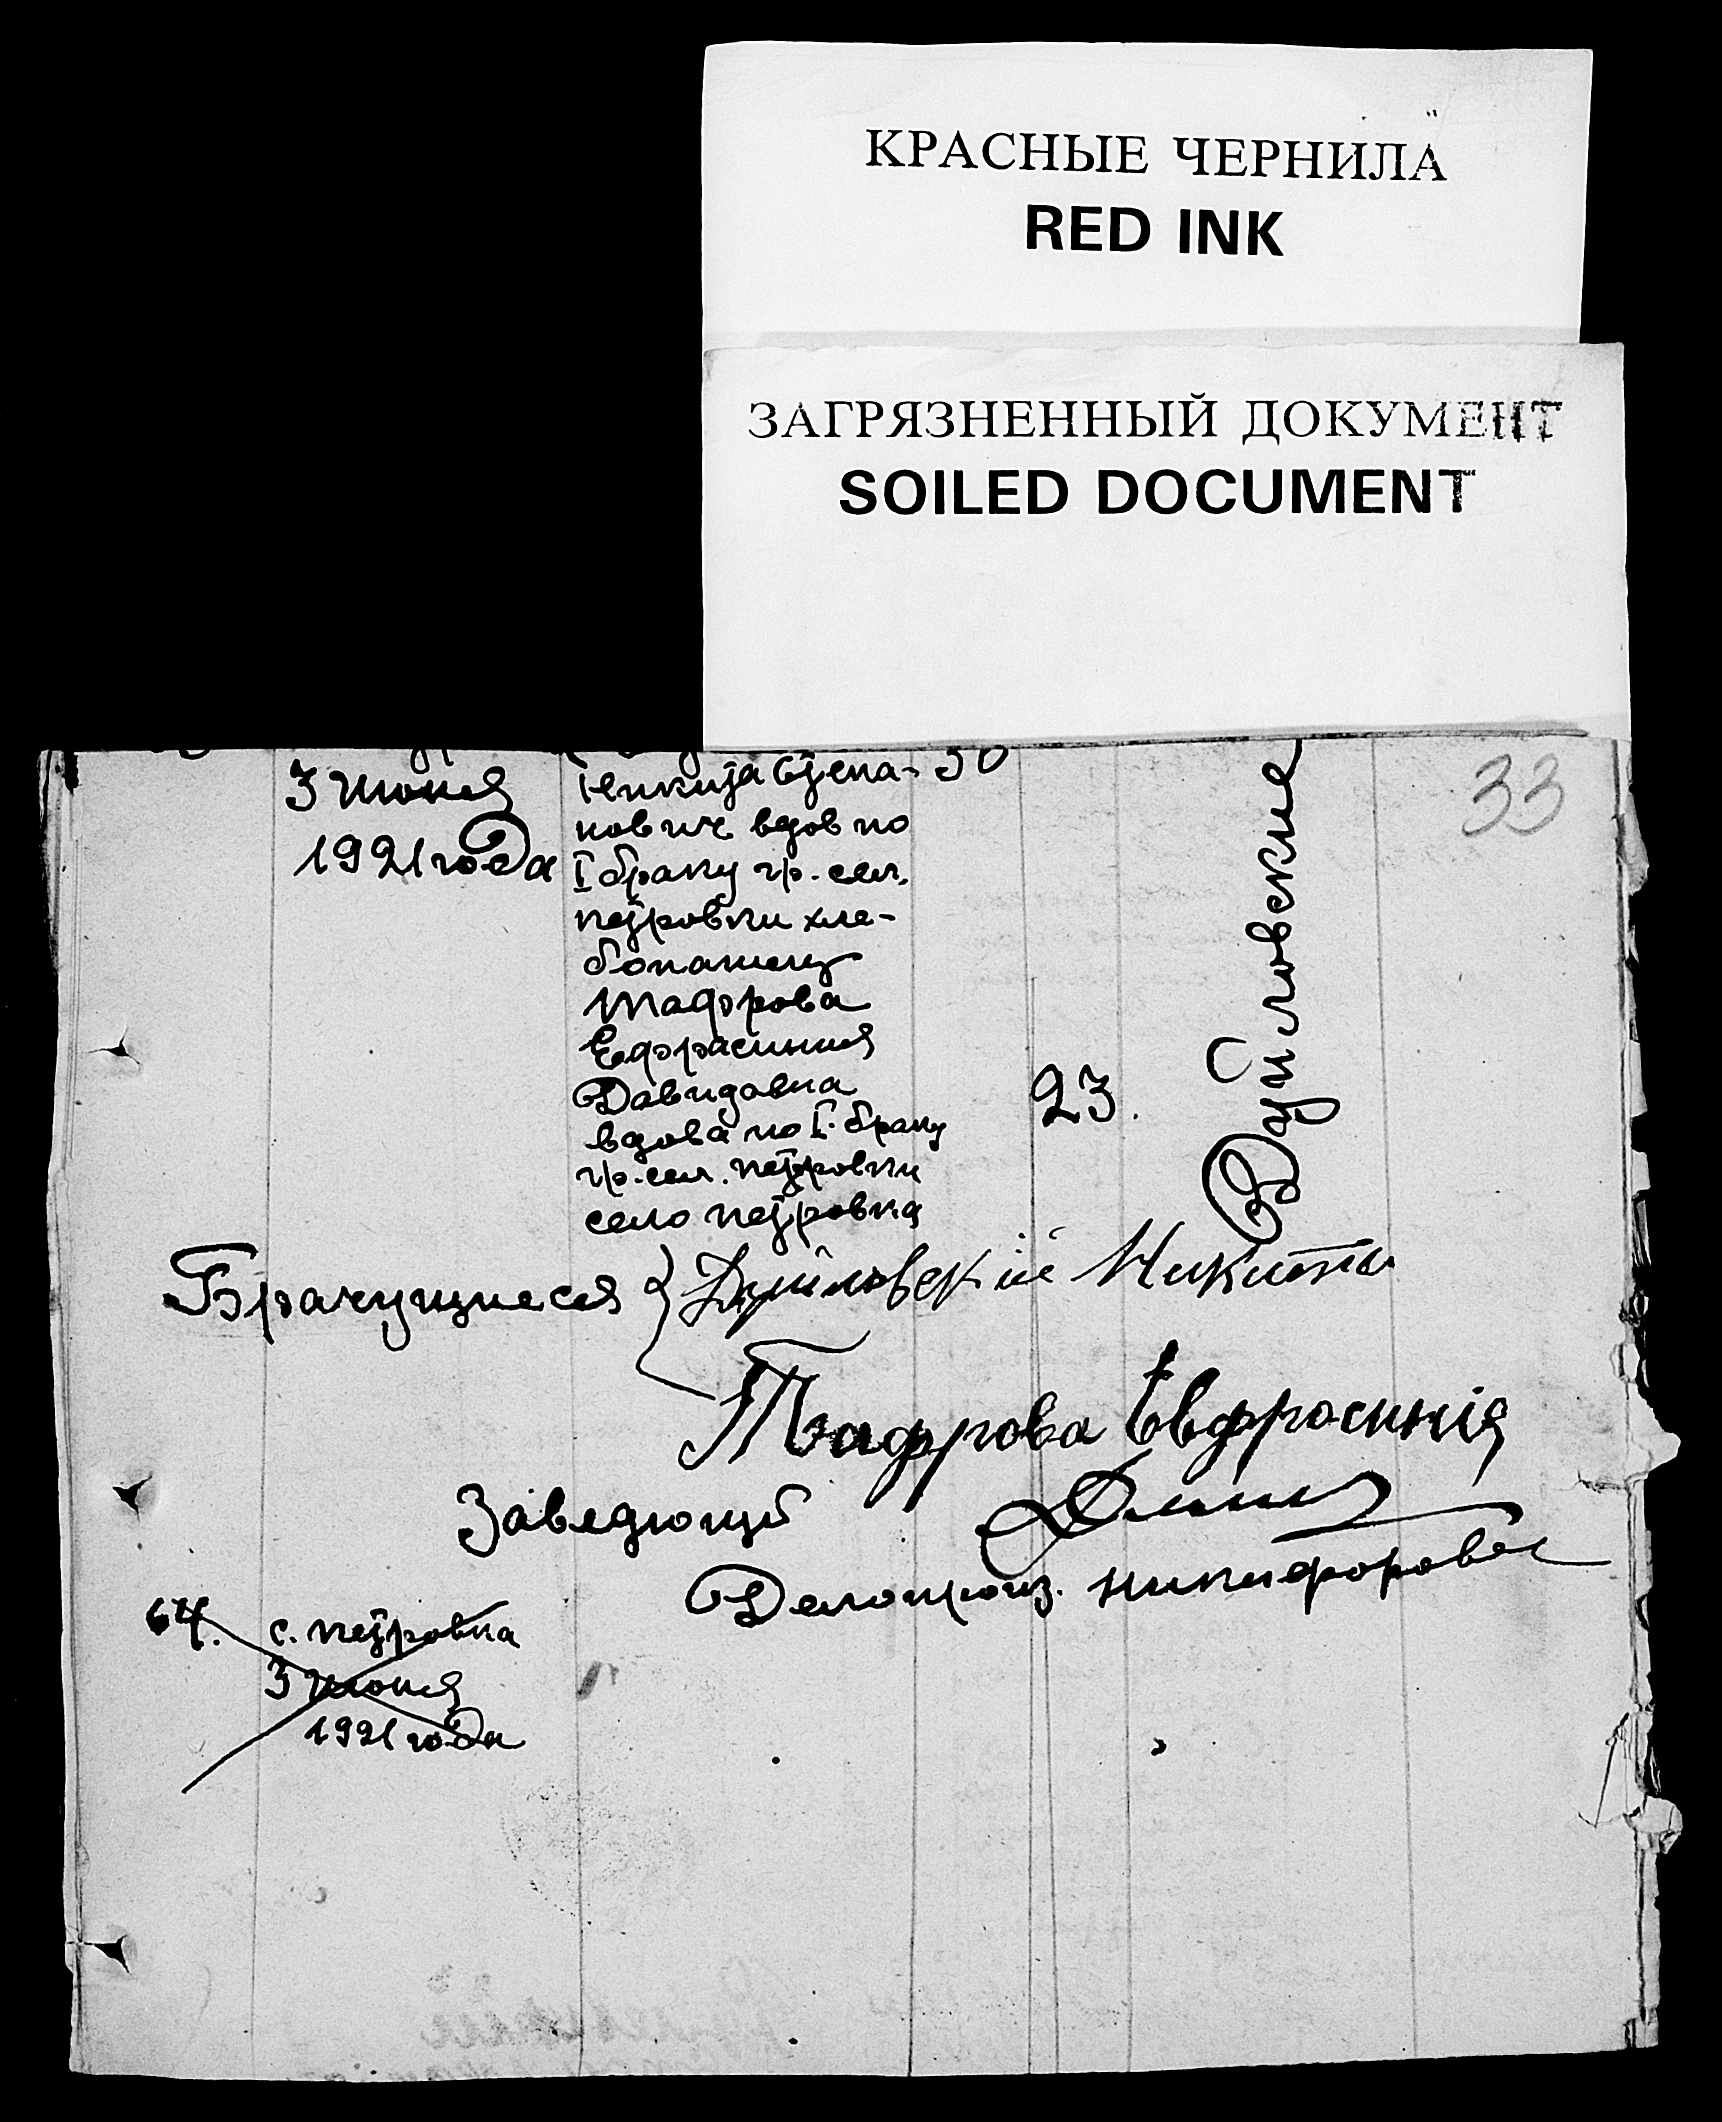 КРАСНЫЕ ЧЕРНИЛА
RED INK
ЗАГРЯЗНЕННЫЙ ДОКУМЕНТ
SOILED DOCUMENT
33
3 июня
1921 года
Никита Степа-
нович вдов по
I браку гр. сел.
Петровки хле-
бопашец
Тафрова
Ефросиния
Давидовна
вдова по I. браку
гр. сел. Петровки
село Петровка
30
23.
Дуйловские
Брачущиеся { Дуйловский Никита
Тафрова Евфросинiя
Заведующий
Делопроиз. Никифорова
64.
с. Петровка
3 июня
1921 года